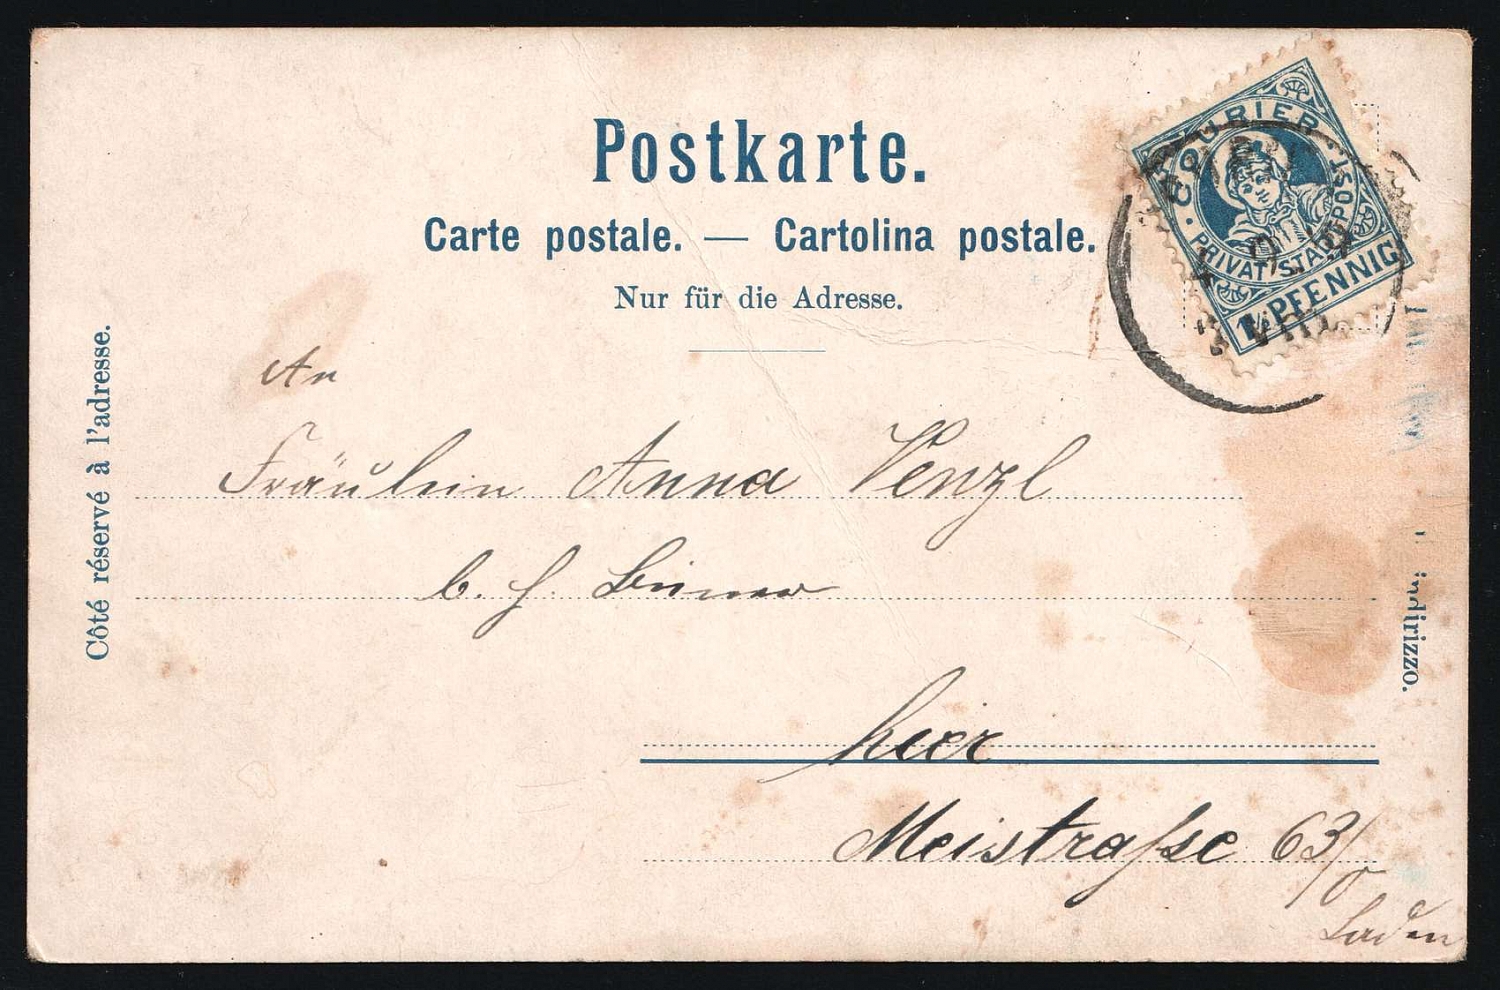 Postkarte.
Carte postale. — Cartolina postale.
Nur für die Adresse.
COURIER
PRIVAT-STADTPOST
PFENNIG
Côté réservé à l'adresse.
indirizzo.
An
Fräulein Anna Venzl
b. H.
hier
Meistraſse 63/0
Laden